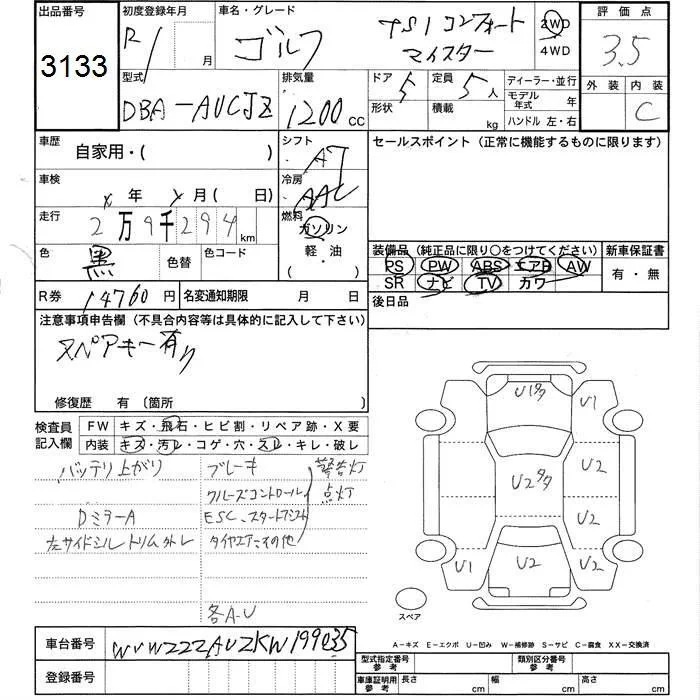 出品番号 初度登録年月 車名・グレード 評価点
3133 R1 月 ゴルフ TSIコンフォート 2WD 3.5
マイスター 4WD
外装 内装
型式 排気量 ドア 定員 ディーラー・並行 C
DBA-AUCJZ 1200 cc 5 5人 モデル年式 年
形状 積載 kg ハンドル 左・右
車歴 自家用・( ) シフト AT セールスポイント (正常に機能するものに限ります)
車検 x年 x月 ( 日) 冷房 AAC
走行 2万9千294km 燃料 ガソリン
軽・油
・( )
色 黒 色替 色コード
装備品 (純正品に限り○をつけてください) 新車保証書
PS PW ABS エアB AW 有・無
SR ナビ TV カワ
R券 14760円 名変通知期限 月 日 後日品
注意事項申告欄 (不具合内容等は具体的に記入して下さい)
スペアキー有り
修復歴 有 (箇所 )
検査員 FW キズ・飛石・ヒビ割・リペア跡・X要
記入欄 内装 キズ・汚レ・コゲ・穴・スレ・キレ・破レ
バッテリ上がり ブレーキ 警告灯
クルーズコントロール 点灯
DミラーA ESC、スタートアシスト
左サイドシルトリム外レ タイヤエアーその他
各A-U
U1タタ U1
U2
U2タタ
U2
U1 U2 U2
スペア
A-キズ E-エクボ U-凹み W-補修跡 S-サビ C-腐食 XX-交換済
車台番号 WVWZZZAUZKW199035
登録番号
型式指定番号 参考 類別区分番号 参考
車庫証明用 参考 長さ cm 幅 cm 高さ cm